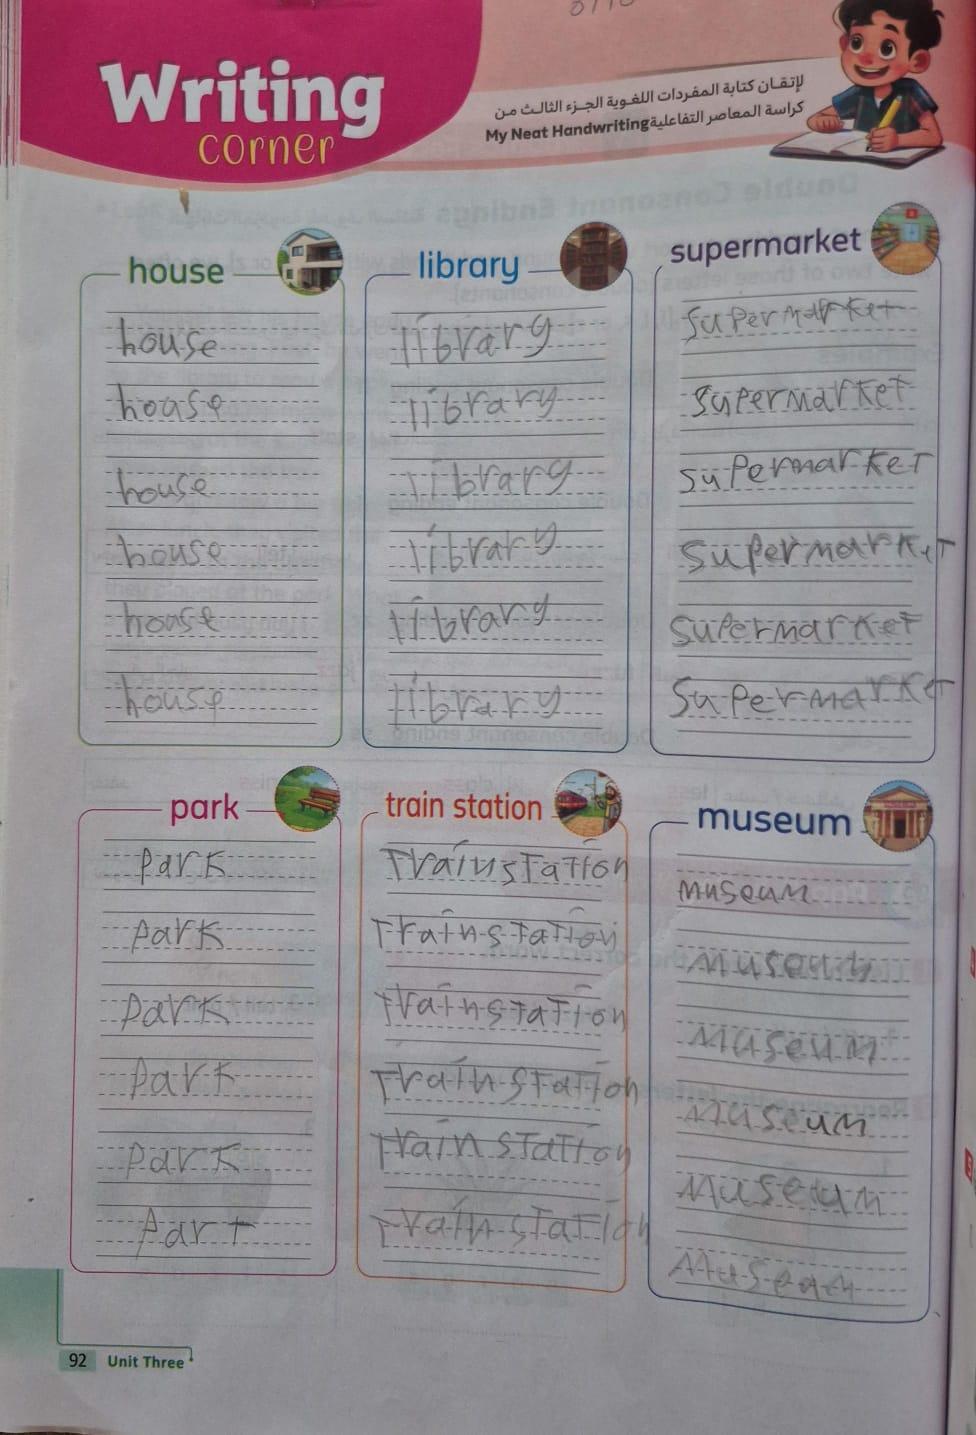 Writing
corner
لإتقـان كتابة المفردات اللغـوية الجـزء الثالـث مـن
كراسة المعاصر التفاعلية My Neat Handwriting
house
house
hoase
house
house
hoase
house
library
library
library
library
library
library
library
supermarket
supermarket
supermarket
supermarkeT
supermarkeT
supermarket
supermarket
park
park
park
park
park
park
part
train station
TrainsTaTion
TrainsTaTion
TrainsTaTion
Train sTaTion
Train sTaTion
Train sTaTion
museum
museum
museum
museum
museum
museum
92 Unit Three